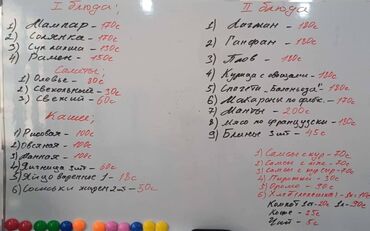 I блюда:
1) Лампар - 170с
2) Солянка - 170с
3) Суп лапша - 130с
4) Рамен - 150с
Салаты:
1) Оливье - 80с
2) Свекольный - 50с
3) Свежий - 60с
Каши:
1) Рисовая - 100с
2) Овсяная - 100с
3) Манная - 100с
4) Яичница 3шт - 60с
5) Яйцо варенное 1 - 18с
6) Сосиски жарен 2шт - 50с
II блюда
1) Лагман - 180с
2) Ганфан - 180с
3) Плов - 180с
4) Курица с овощами - 180с
5) Спагетти "Болоньезе" 180с
6) Макароны по флотс. - 170с
7) Манты - 200с
8) Мясо по французски - 180с
9) Блины 3шт - 45с
1) Самсы с кур - 70с
4) Пирожки - 30с
5) Оромо - 90с
Компот 1л - 90с
Кофе - 25с
Чай - 5с